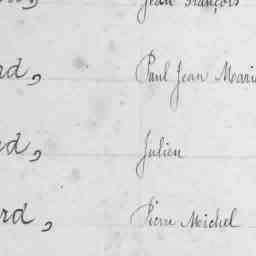 Jean François
rd, Paul Jean Marie
rd, Julien
rd, Pierre Michel